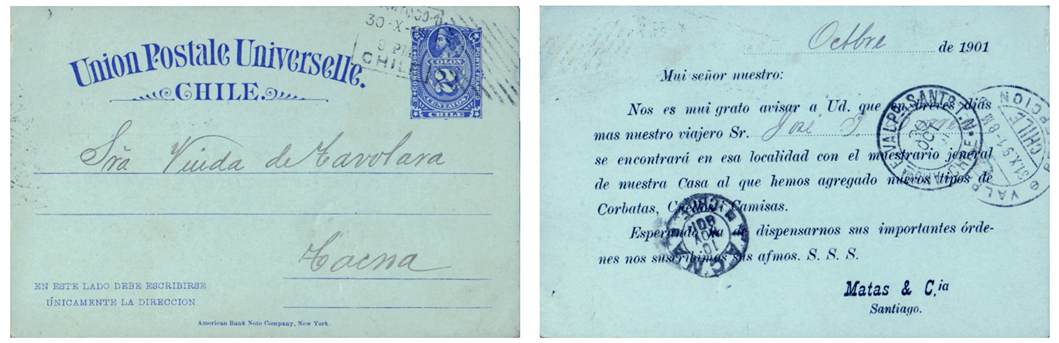 Union Postale Universelle.
CHILE.
30-X-
CHILE
COLON
2
CENTAVOS
CHILE
Sra Viuda de Tavolara
Tacna
EN ESTE LADO DEBE ESCRIBIRSE
ÚNICAMENTE LA DIRECCION
American Bank Note Company, New York.
Octbre de 1901
Mui señor nuestro:
Nos es mui grato avisar a Ud. que en breves dias
mas nuestro viajero Sr. José
se encontrará en esa localidad con el muestrario jeneral
de nuestra Casa al que hemos agregado nuevos tipos de
Corbatas, Camisas.
Esperando de dispensarnos sus importantes órde-
nes nos suscribimos sus afmos. S. S. S.
Matas & C.ia
Santiago.
VALPO-SANTO. N.
30
OCT
CHILE
TACNA
CHILE
10
NOV